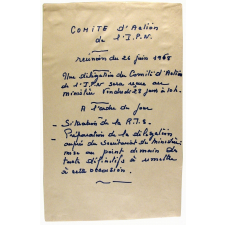 COMITE d'Action
de l'I.P.N.
réunion du 26 juin 1968
Une délégation du Comité d'Action
de l'I.P.N sera reçue au
ministère Vendredi 28 juin à 10h.
A l'ordre du jour
- Situation de la R.T.S.
- Préparation de la délégation
auprès du Secrétariat du Ministère:
mise au point demain du
texte définitif à remettre
à cette occasion.